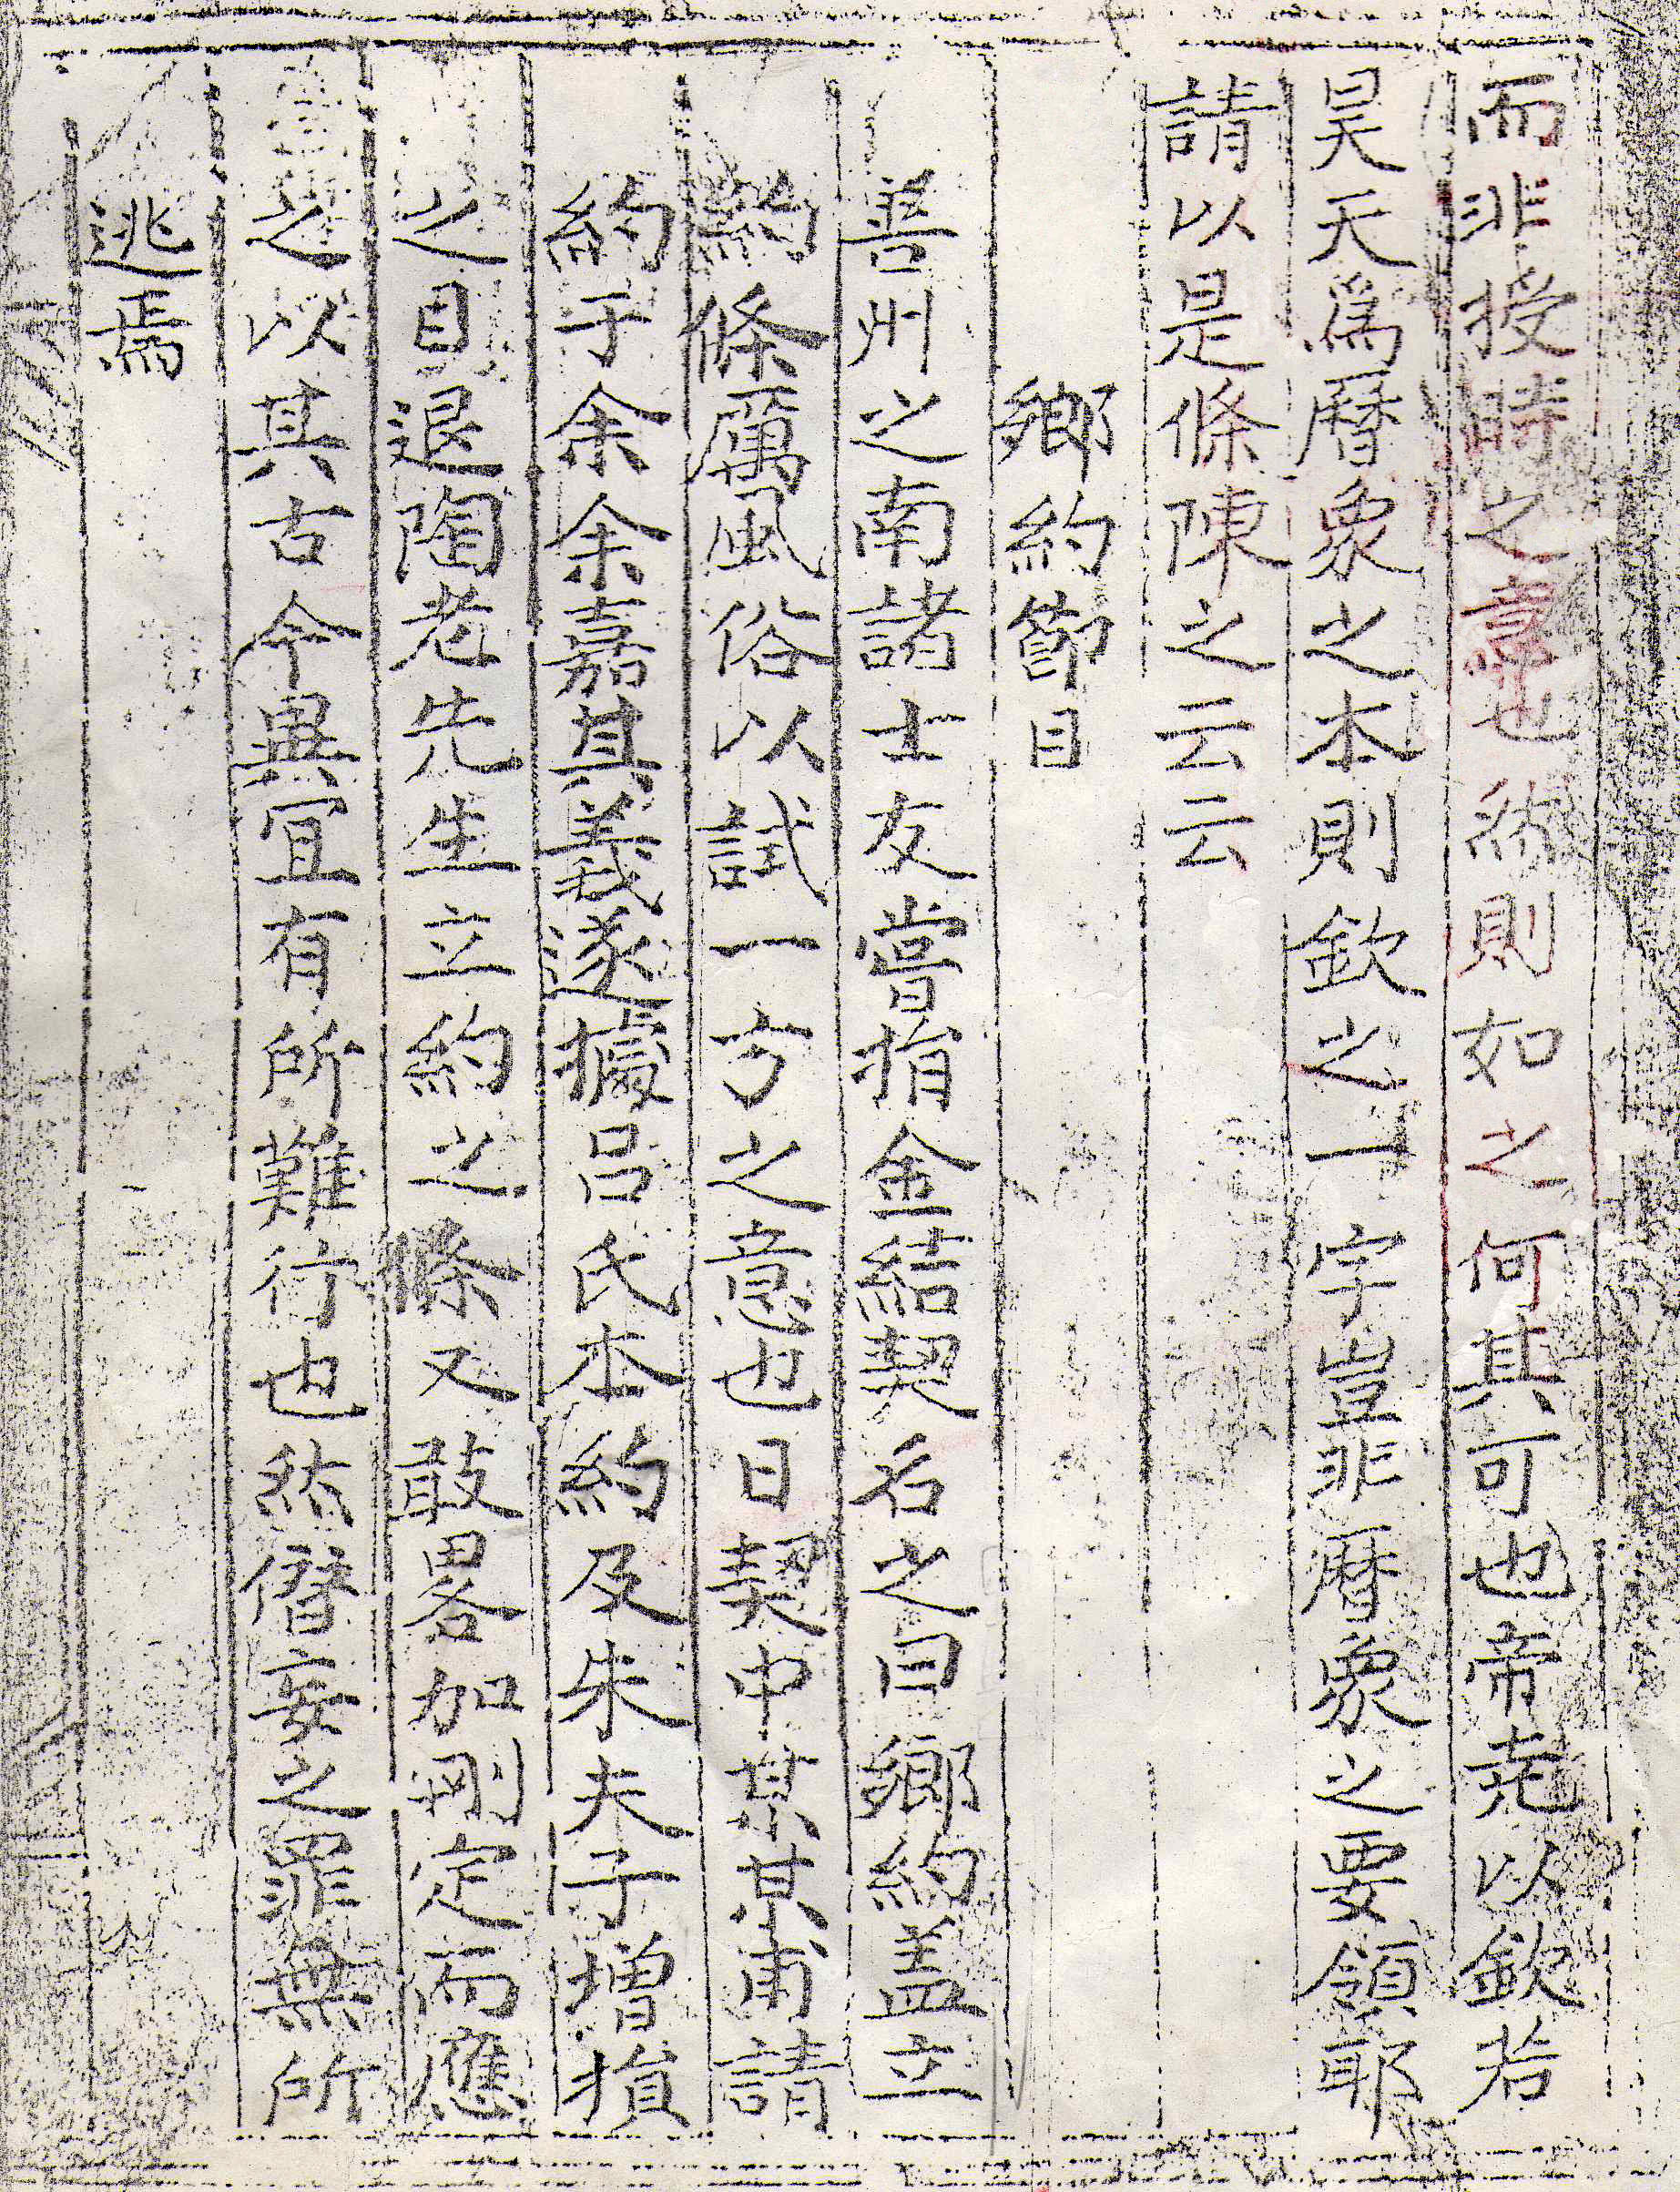 而非授時之意也然則如之何其可也帝堯以欽若
昊天爲曆象之本則欽之一字豈非曆象之要領耶
請以是條陳之云云
鄕約節目
善州之南諸士友嘗捐金結契名之曰鄕約盖立
約條厲風俗以試一方之意也日契中某某甫請
約于余余嘉其義遂據呂氏本約及朱夫子增損
之目退陶老先生立約之條又敢畧加刪定而應
之以其古今異宜有所難行也然僭妄之罪無所
逃焉